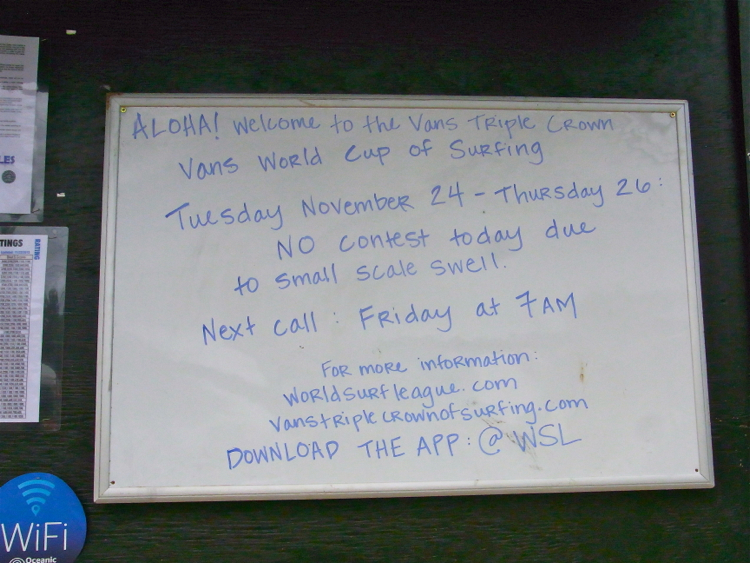 ALOHA! Welcome to the Vans Triple Crown
Vans World Cup of Surfing
Tuesday November 24 - Thursday 26:
NO contest today due
to small scale swell.
Next call: Friday at 7AM
For more information:
worldsurfleague.com
vanstriplecrownofsurfing.com
DOWNLOAD THE APP: @WSL
LES
TINGS
RATING
WiFi
Oceanic